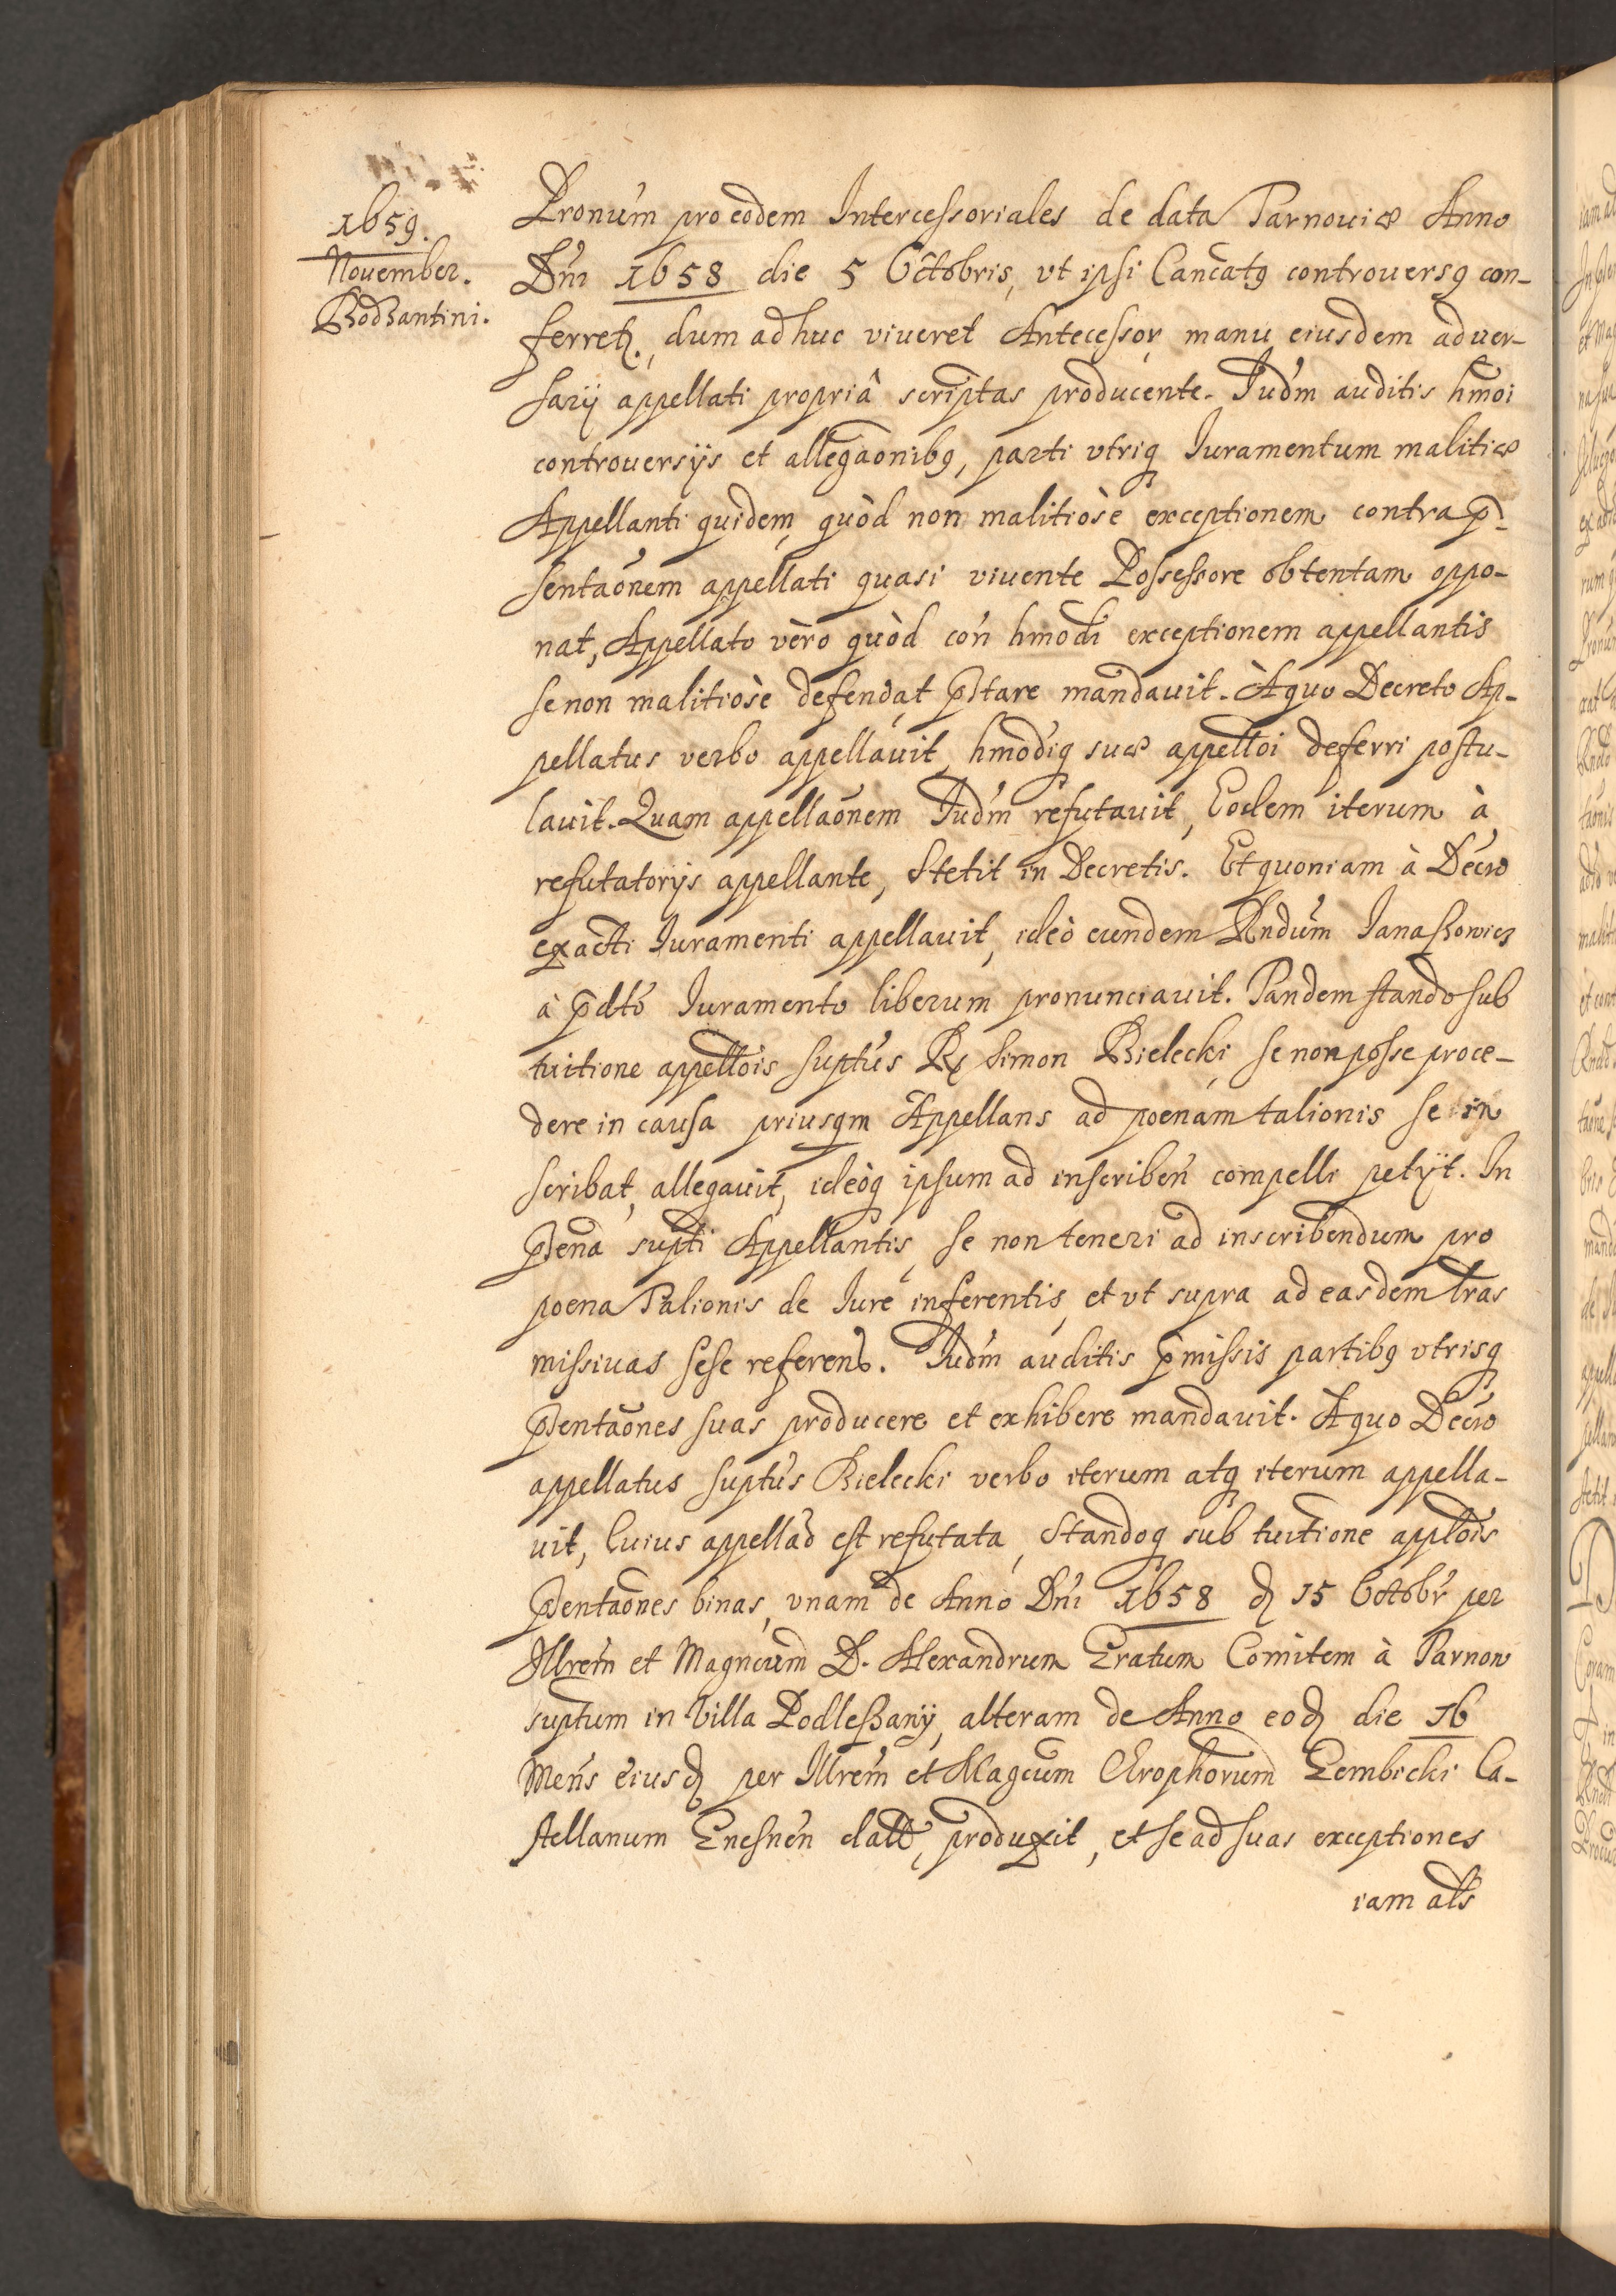 1659.
November.
Bodzantini.
Pronum pro eodem Intercessoriales de data Tarnoviæ Anno
Dni 1658 die 5 Octobris, vt ipsi Cancatq controversq con-
ferretz., dum adhuc viueret Antecessor, manu eiusdem aduer-
sarÿ appellati propriâ scriptas producente. Judm auditis hmoi
controuersÿs et allegaonibq, parti vtriq Iuramentum malitiæ
Appellanti quidem, quòd non malitiosè exceptionem contra p-
sentaonem appellati quasi viuente Possessore obtentam oppo-
nat, Appellato vèro quòd con hmodi exceptionem appellantis
se non malitiosè defendat pstare mandauit. À quo Decreto Ap-
pellatus verbo appellauit, hmodiq suæ appelloi deferri postu-
lauit. Quam appellaonem Judm refutauit, Eodem iterum à
refutatorÿs appellante, Stetit in Decretis. Et quoniam à Decro
exacti Iuramenti appellauit, ideò eundem Rndum Janaszowicz
à pdto Iuramento liberum pronunciauit. Tandem stando sub
tuitione appellois suptus Rx Simon Bielecki se non posse proce-
dere in causa priusqm Appellans ad poenam talionis se in
scribat, allegauit, ideòq ipsum ad inscriben compelli petÿt. In
psena supti Appellantis, se non teneri ad inscribendum pro
poena Talionis de Iure inferentis, et vt supra ad easdem lras
missiuas sese referen. Judm auditis pmissis partibq vtrisq
psentaones suas producere et exhibere mandauit. A quo Decro
appellatus suptus Bielecki verbo iterum atq iterum appella-
uit, Cuius appellao est refutata, Standoq sub tuitione applois
psentaones binas, vnam de Anno Dni 1658 d 15 Octobr per
Illrem et Magncum D. Alexandrum Gratum Comitem à Tarnow
suptum in Villa Podleszanÿ, alteram de Anno eod die 16
Mens eiusd per Illrem et Magcum Chrophorum Gembicki Ca-
stellanum Gnesnen datt, produxit, et se ad suas exceptiones
iam als